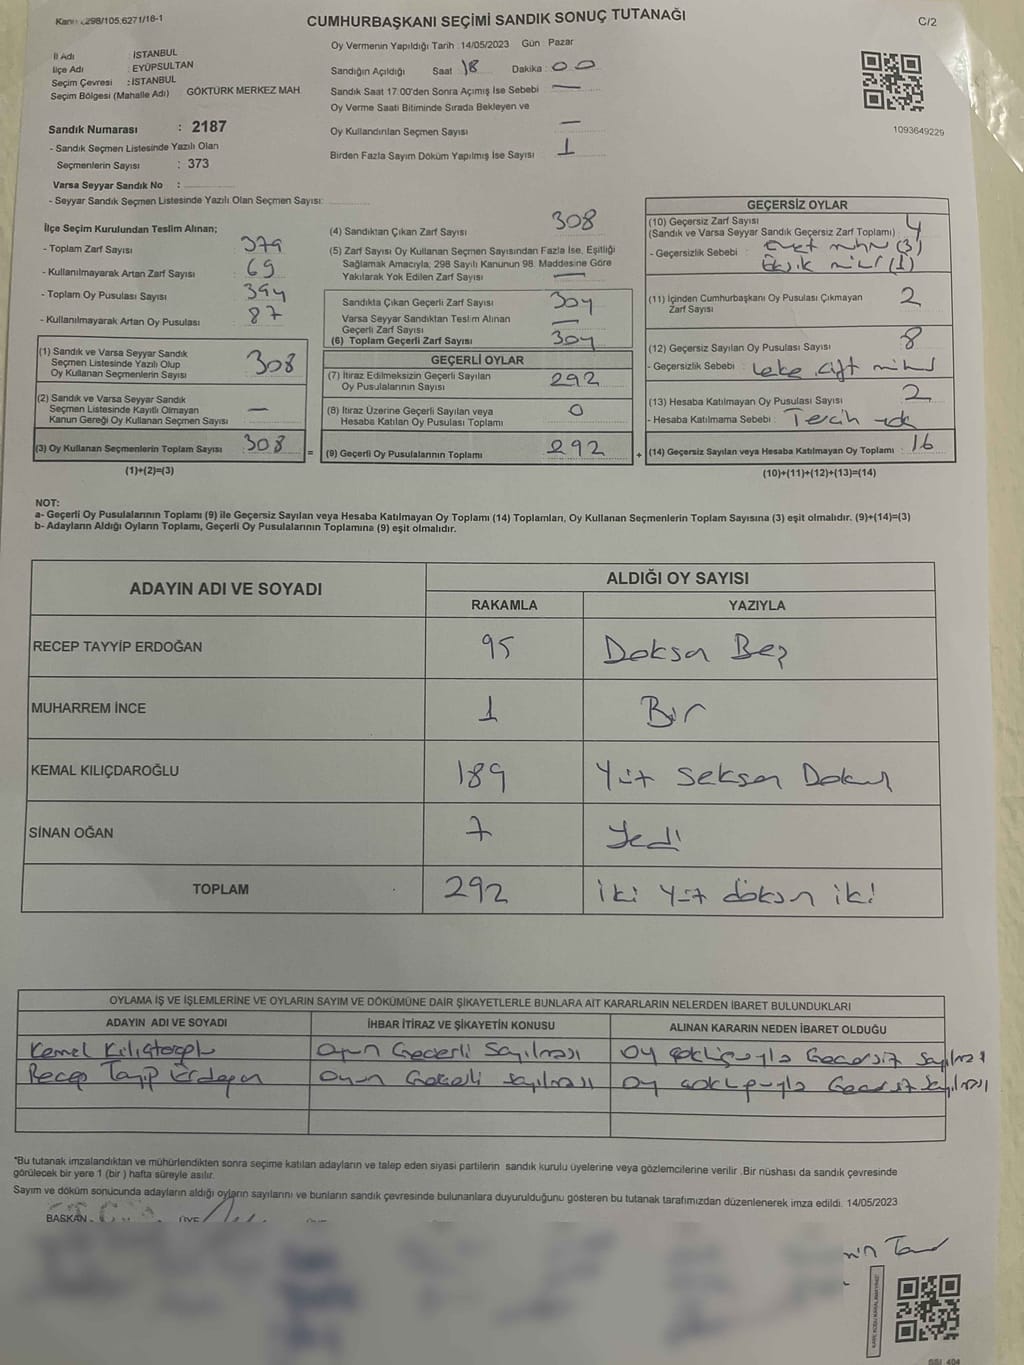 CUMHURBAŞKANI SEÇİMİ SANDIK SONUÇ TUTANAĞI
C/2
İl Adı : İSTANBUL
İlçe Adı : EYÜPSULTAN
Seçim Çevresi : İSTANBUL
Seçim Bölgesi (Mahalle Adı) GÖKTÜRK MERKEZ MAH.
Sandık Numarası : 2187
- Sandık Seçmen Listesinde Yazılı Olan
Seçmenlerin Sayısı : 373
Varsa Seyyar Sandık No :
- Seyyar Sandık Seçmen Listesinde Yazılı Olan Seçmen Sayısı:
Oy Vermenin Yapıldığı Tarih : 14/05/2023 Gün : Pazar
Sandığın Açıldığı Saat 18 Dakika : 00
Sandık Saat 17:00'den Sonra Açımış İse Sebebi —
Oy Verme Saati Bitiminde Sırada Bekleyen ve
Oy Kullandırılan Seçmen Sayısı —
Birden Fazla Sayım Döküm Yapılmış İse Sayısı 1
1093649229
İlçe Seçim Kurulundan Teslim Alınan;
- Toplam Zarf Sayısı 379
- Kullanılmayarak Artan Zarf Sayısı : 69
- Toplam Oy Pusulası Sayısı : 394
- Kullanılmayarak Artan Oy Pusulası : 87
(1) Sandık ve Varsa Seyyar Sandık
Seçmen Listesinde Yazılı Olup
Oy Kullanan Seçmenlerin Sayısı 308
(2) Sandık ve Varsa Seyyar Sandık
Seçmen Listesinde Kayıtlı Olmayan
Kanun Gereği Oy Kullanan Seçmen Sayısı —
(3) Oy Kullanan Seçmenlerin Toplam Sayısı 308
(1)+(2)=(3)
(4) Sandıktan Çıkan Zarf Sayısı 308
(5) Zarf Sayısı Oy Kullanan Seçmen Sayısından Fazla İse, Eşitliği
Sağlamak Amacıyla, 298 Sayılı Kanunun 98. Maddesine Göre
Yakılarak Yok Edilen Zarf Sayısı —
Sandıkta Çıkan Geçerli Zarf Sayısı 304
Varsa Seyyar Sandıktan Teslim Alınan
Geçerli Zarf Sayısı —
(6) Toplam Geçerli Zarf Sayısı 304
GEÇERLİ OYLAR
(7) İtiraz Edilmeksizin Geçerli Sayılan
Oy Pusulalarının Sayısı 292
(8) İtiraz Üzerine Geçerli Sayılan veya
Hesaba Katılan Oy Pusulası Toplamı 0
= (9) Geçerli Oy Pusulalarının Toplamı 292
GEÇERSİZ OYLAR
(10) Geçersiz Zarf Sayısı
(Sandık ve Varsa Seyyar Sandık Geçersiz Zarf Toplamı) : 4
- Geçersizlik Sebebi : (3)
Eksik mühür (1)
(11) İçinden Cumhurbaşkanı Oy Pusulası Çıkmayan
Zarf Sayısı 2
(12) Geçersiz Sayılan Oy Pusulası Sayısı 8
- Geçersizlik Sebebi : Leke, Çift mühür
(13) Hesaba Katılmayan Oy Pusulası Sayısı 2
- Hesaba Katılmama Sebebi : Tercih yok
+ (14) Geçersiz Sayılan veya Hesaba Katılmayan Oy Toplamı : 16
(10)+(11)+(12)+(13)=(14)
NOT:
a- Geçerli Oy Pusulalarının Toplamı (9) ile Geçersiz Sayılan veya Hesaba Katılmayan Oy Toplamı (14) Toplamları, Oy Kullanan Seçmenlerin Toplam Sayısına (3) eşit olmalıdır. (9)+(14)=(3)
b- Adayların Aldığı Oyların Toplamı, Geçerli Oy Pusulalarının Toplamına (9) eşit olmalıdır.
ADAYIN ADI VE SOYADI ALDIĞI OY SAYISI
RAKAMLA YAZIYLA
RECEP TAYYİP ERDOĞAN 95 Doksan Beş
MUHARREM İNCE 1 Bir
KEMAL KILIÇDAROĞLU 189 Yüz Seksen Dokuz
SİNAN OĞAN 7 Yedi
TOPLAM 292 iki Yüz doksan iki
OYLAMA İŞ VE İŞLEMLERİNE VE OYLARIN SAYIM VE DÖKÜMÜNE DAİR ŞİKAYETLERLE BUNLARA AİT KARARLARIN NELERDEN İBARET BULUNDUKLARI
ADAYIN ADI VE SOYADI İHBAR İTİRAZ VE ŞİKAYETİN KONUSU ALINAN KARARIN NEDEN İBARET OLDUĞU
Kemal Oyun Geçerli Sayılması Oy çokluğuyla Geçersiz Sayılması
Recep Tayyip Erdoğan Oyun Geçerli Sayılması Oy çokluğuyla Geçersiz Sayılması
*Bu tutanak imzalandıktan ve mühürlendikten sonra seçime katılan adayların ve talep eden siyasi partilerin sandık kurulu üyelerine veya gözlemcilerine verilir. Bir nüshası da sandık çevresinde
görülecek bir yere 1 (bir) hafta süreyle asılır.
Sayım ve döküm sonucunda adayların aldığı oyların sayılarını ve bunların sandık çevresinde bulunanlara duyurulduğunu gösteren bu tutanak tarafımızdan düzenlenerek imza edildi. 14/05/2023
BAŞKAN